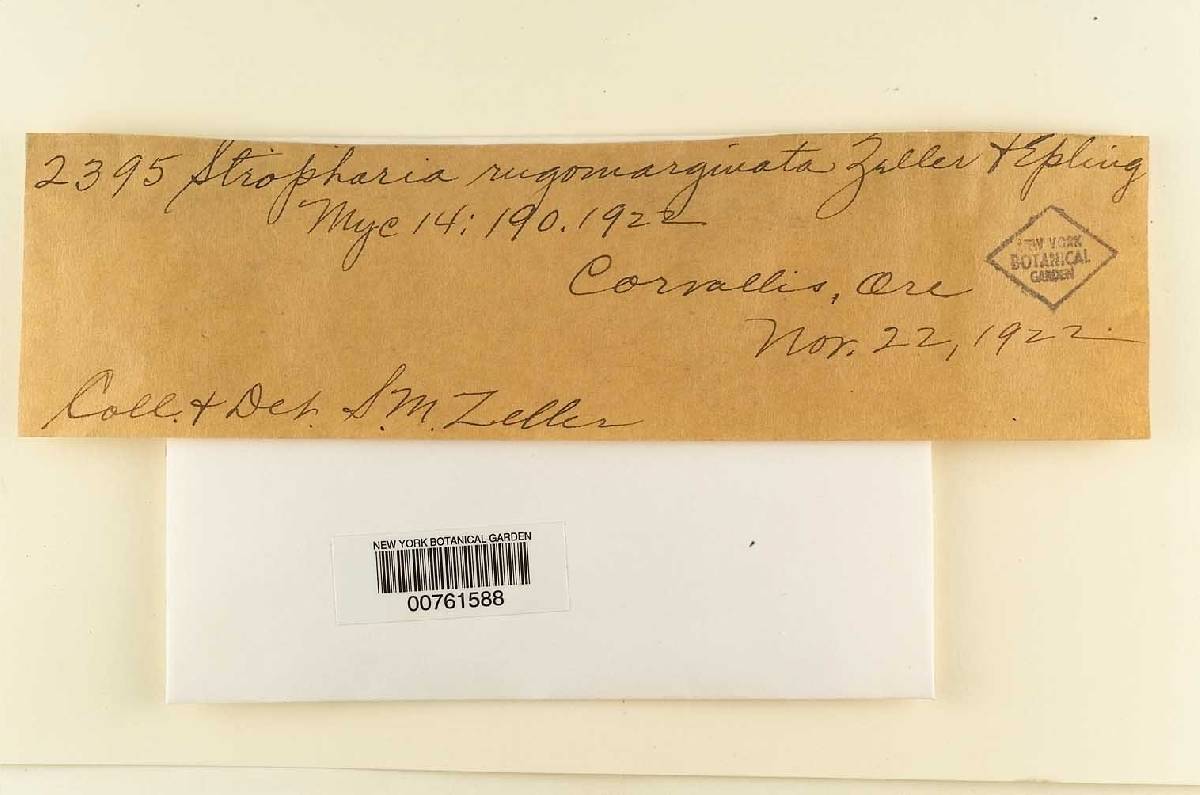 2395 Stropharia rugomarginata Zeller & Epling
Myc 14: 190. 1922
NEW YORK
BOTANICAL
GARDEN
Corvallis, Ore
Nov. 22, 1922
Coll. & Det. S.M. Zeller
NEW YORK BOTANICAL GARDEN
00761588